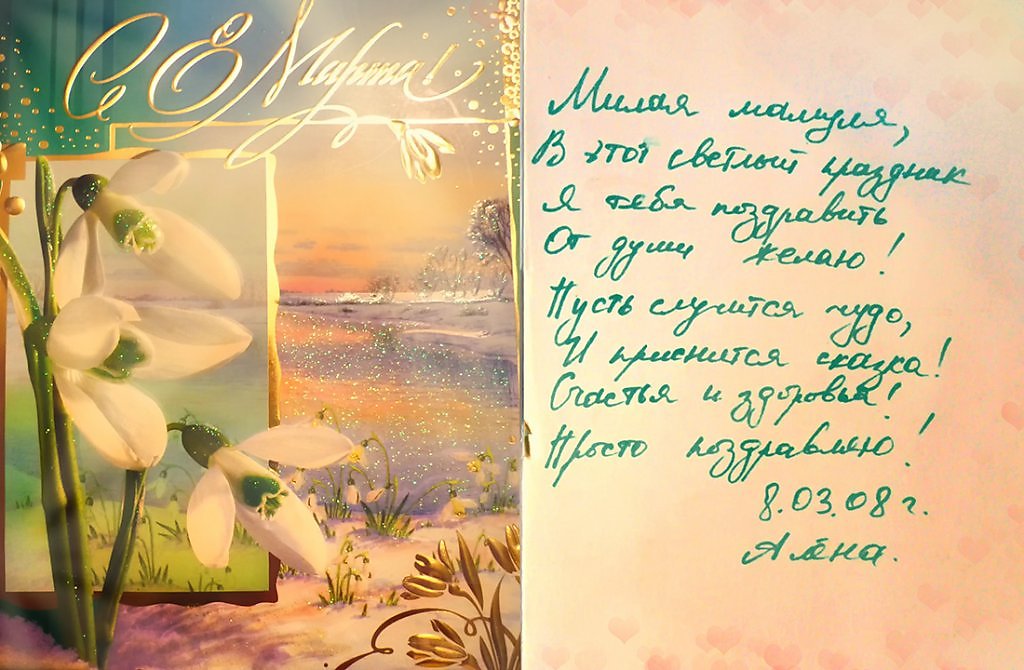 С 8 Марта!
Милая мамуля,
В этот светлый праздник
Я тебя поздравить
От души желаю!
Пусть случится чудо,
И приснится сказка!
Счастья и здоровья!
Просто поздравляю!
8.03.08 г.
Алёна.